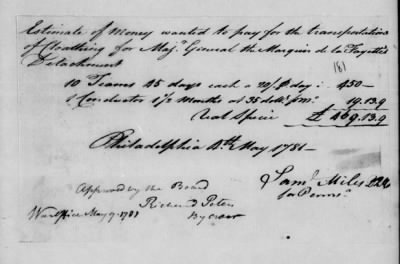 Estimate of Money wanted to pay for the transportation
of Cloathing for Maj.r General the Marquis de la Fayette's
Detachment
181
10 Teams 45 days each a 20/ P day : 450—
1 Conductor 1 1/2 Months at 35 doll.s P m.o 19.13.9
Real Specie £ 469.13.9
Philadelphia 4th May 1781—
Sam.l Miles DQM
Approved by the Board
Richard Peters
War Office May 9. 1781
By order